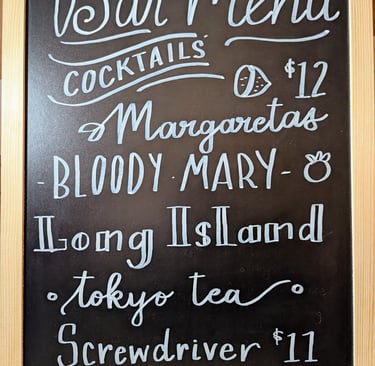 Bar Menu
COCKTAILS
$12
Margaretas
- BLOODY MARY -
Long Island
• tokyo tea •
Screwdriver $11